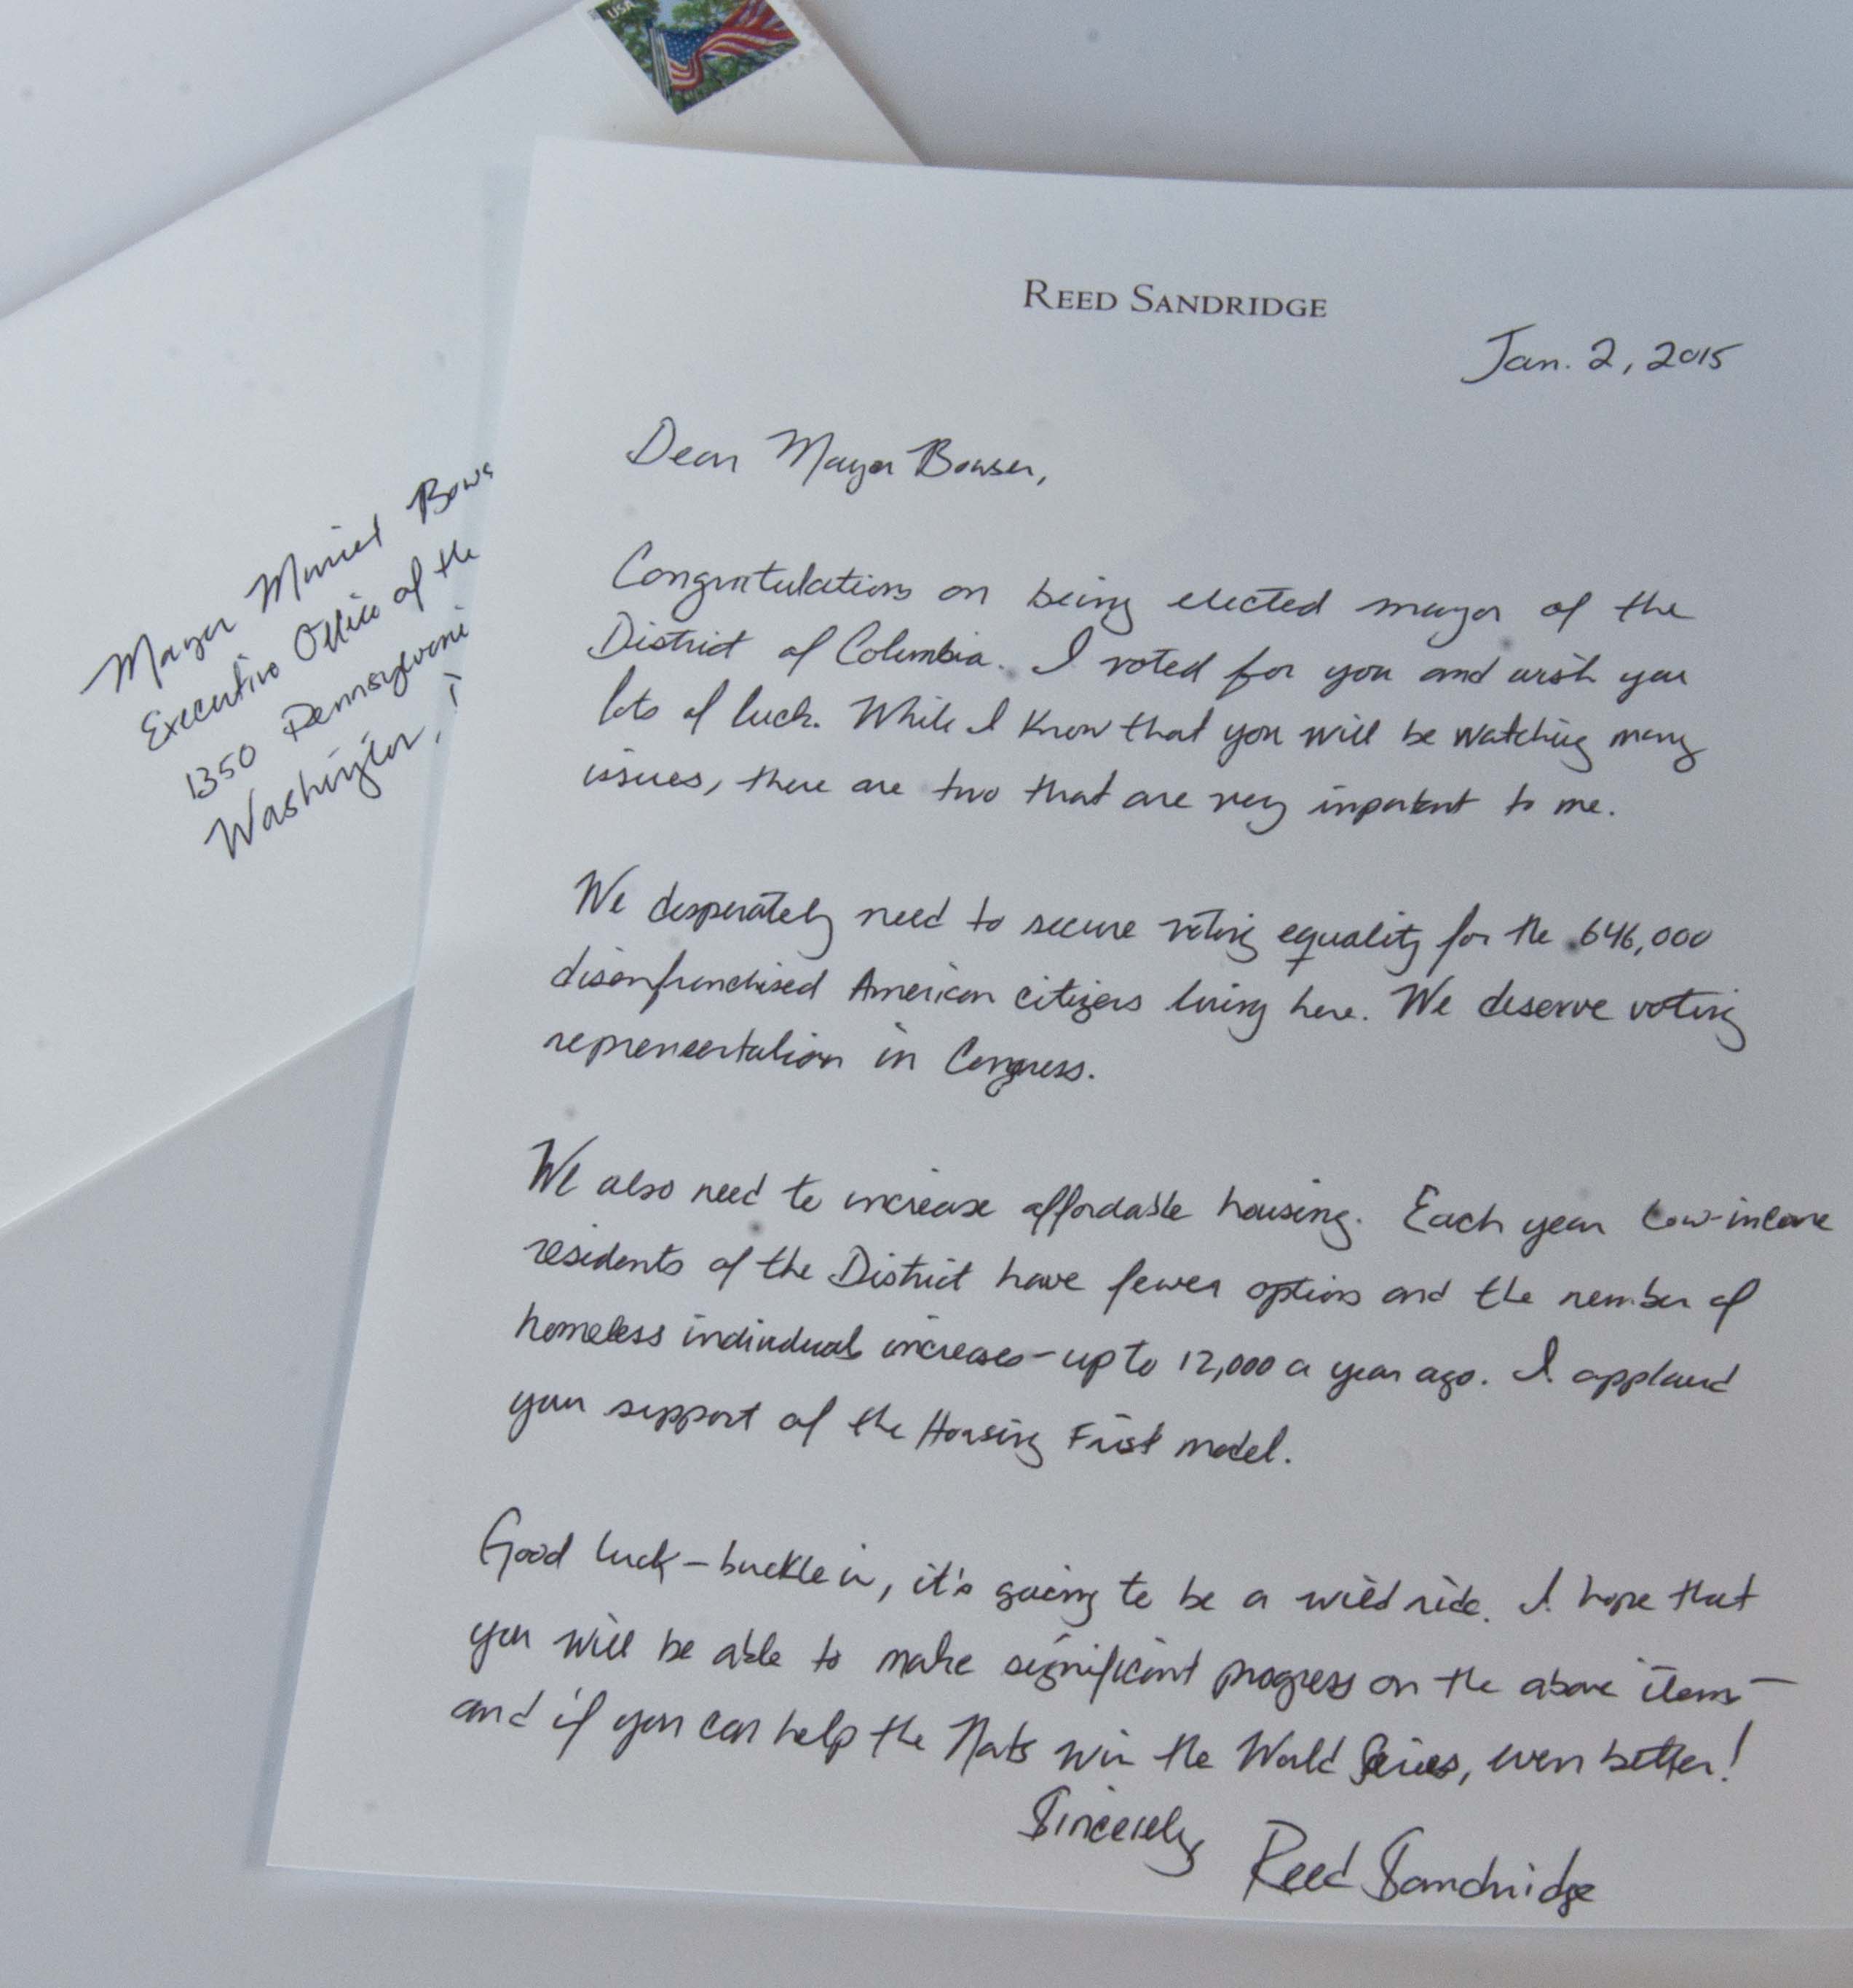 USA
Mayor Muriel Bows
Executive Office of the
1350 Pennsylvani
Washington,
REED SANDRIDGE
Jan. 2, 2015
Dear Mayor Bowser,
Congratulations on being elected mayor of the
District of Columbia. I voted for you and wish you
lots of luck. While I know that you will be watching many
issues, there are two that are very important to me.
We desperately need to secure voting equality for the 646,000
disenfranchised American citizens living here. We deserve voting
representation in Congress.
We also need to increase affordable housing. Each year low-income
residents of the District have fewer options and the number of
homeless individuals increases - up to 12,000 a year ago. I applaud
your support of the Housing First model.
Good luck - buckle in, it's going to be a wild ride. I hope that
you will be able to make significant progress on the above items -
and if you can help the Nats win the World Series, even better!
Sincerely,
Reed Sandridge